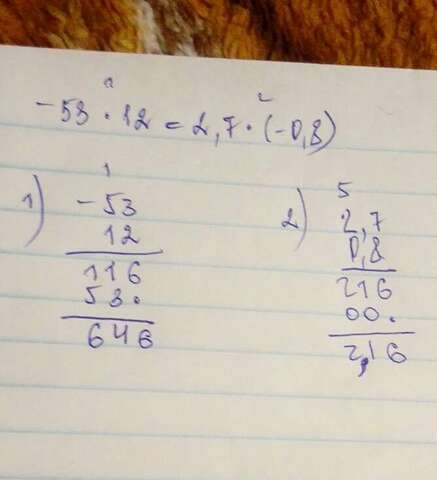 1 2
-53 · 12 = 2,7 · (-0,8)
1) 1
-53
12
116
53·
646
2) 5
2,7
0,8
216
00·
2,16